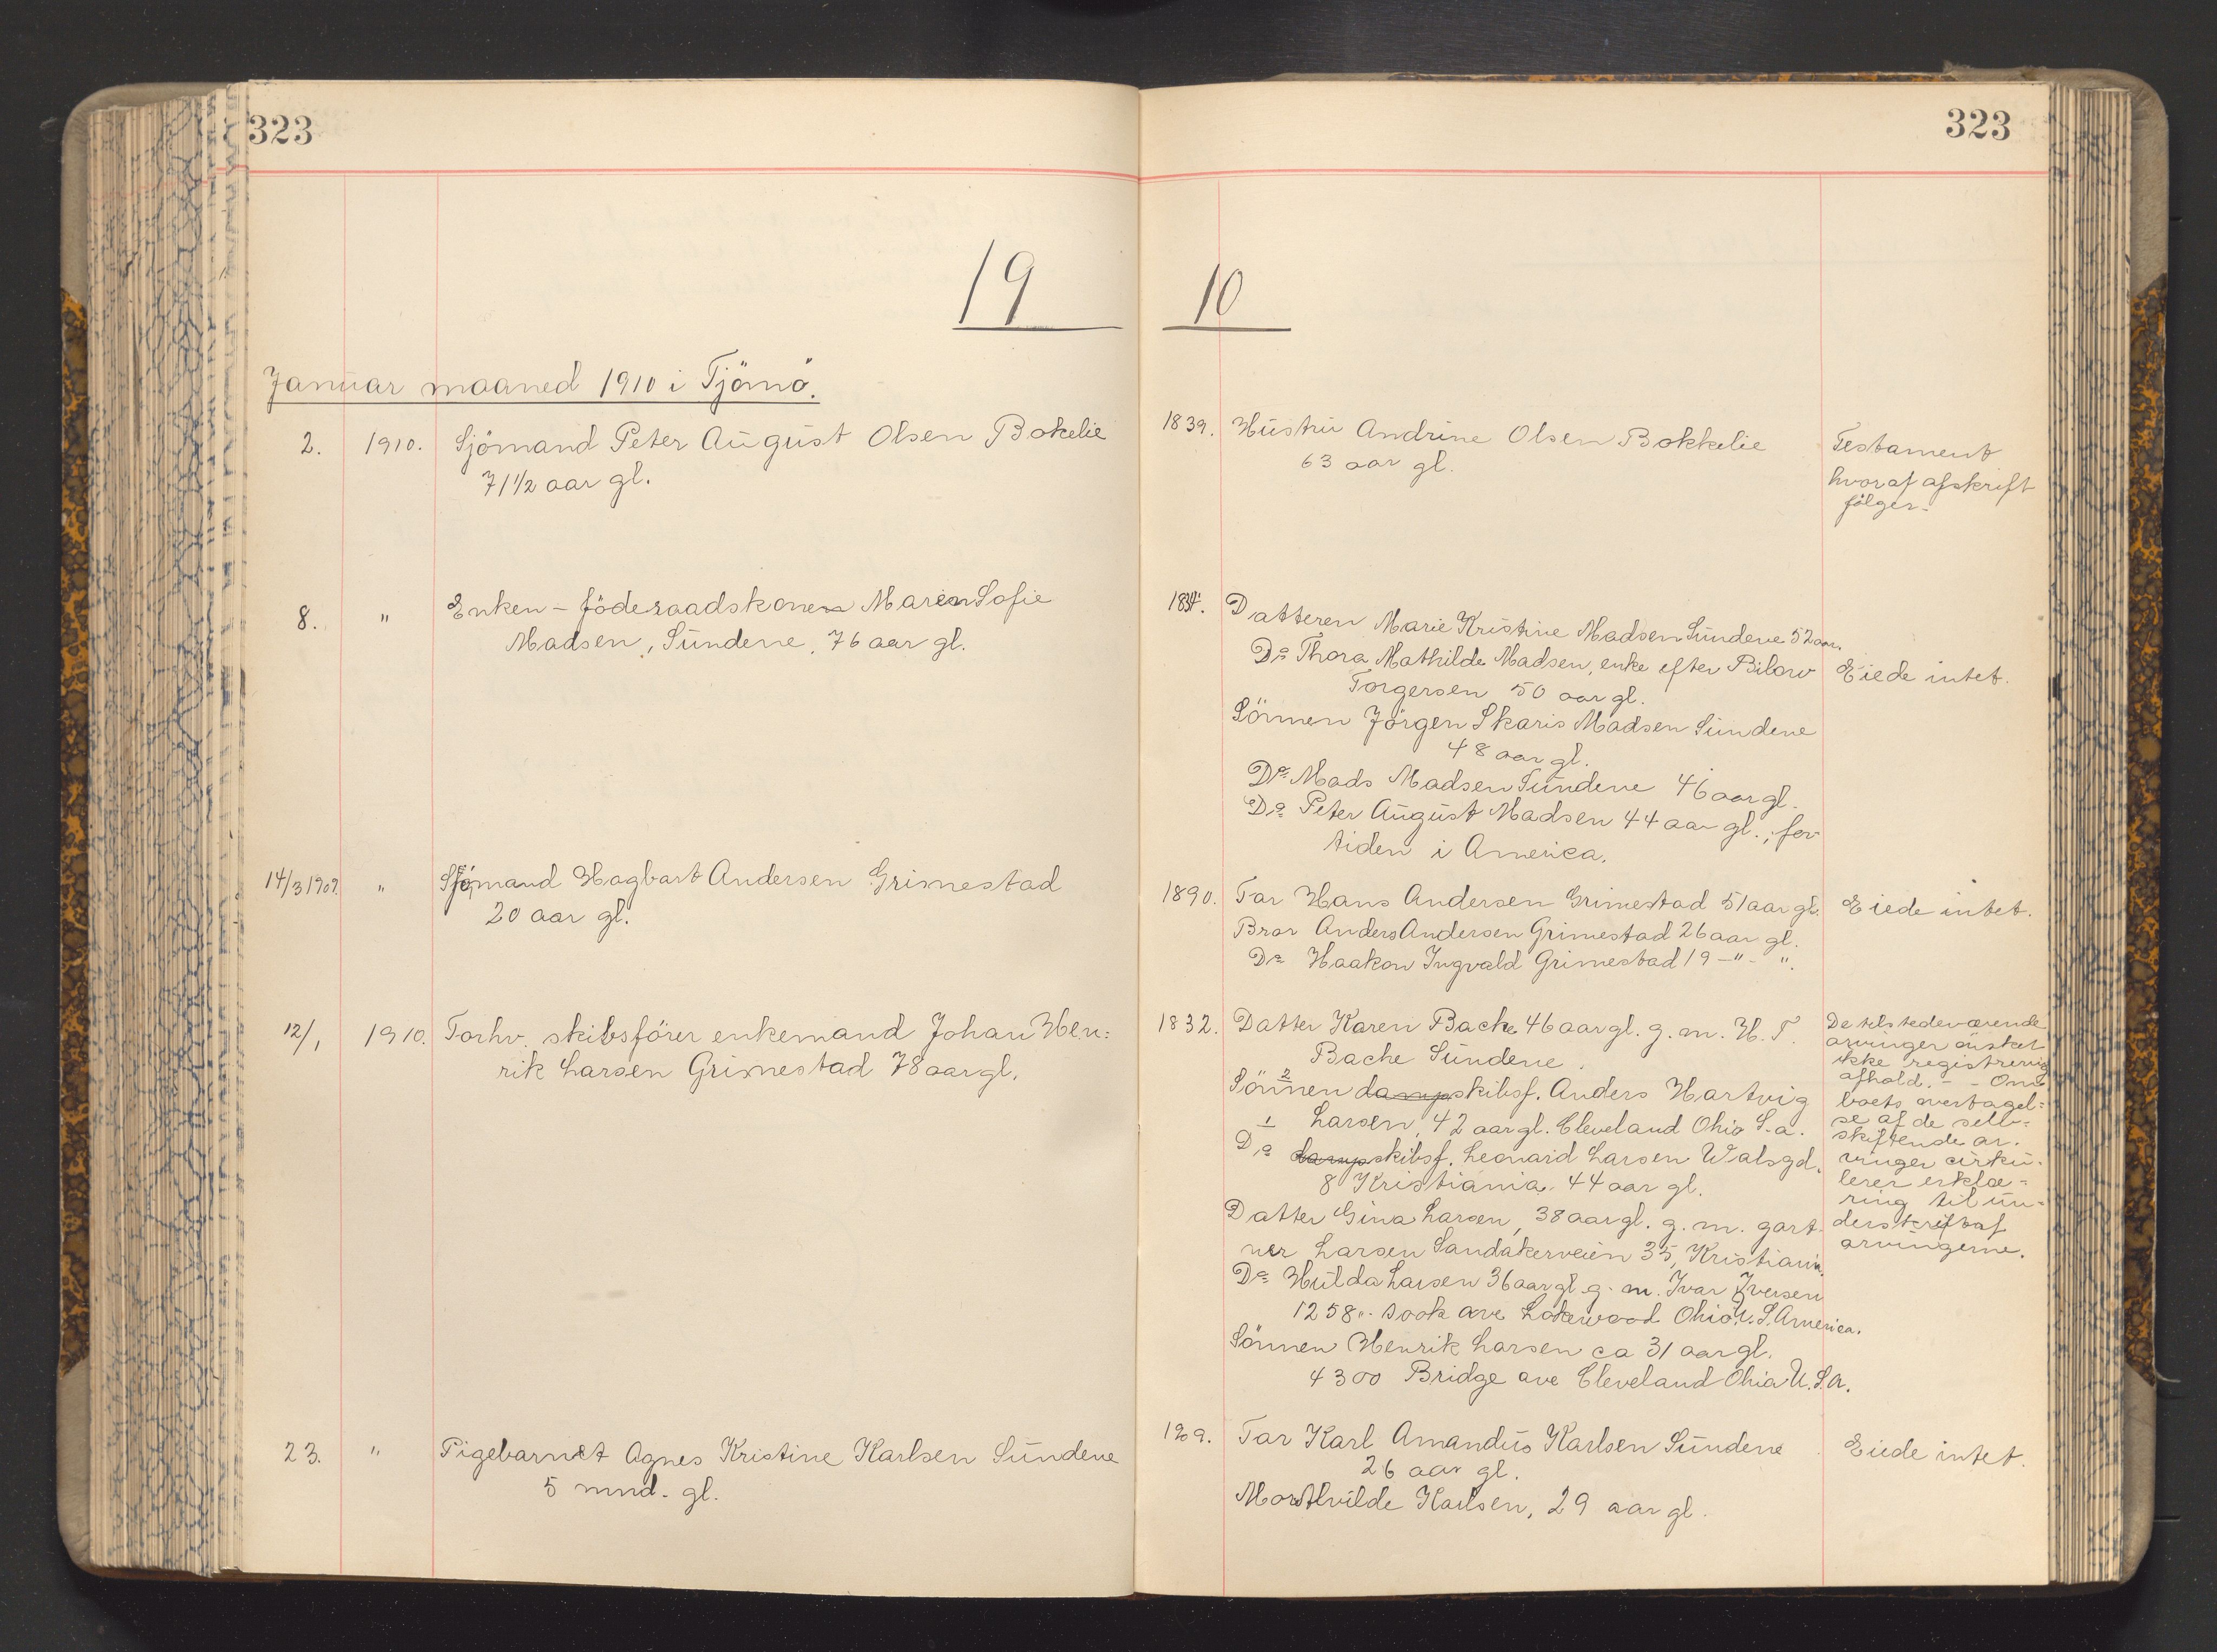 323
19
Januar maaned 1910 i Tjömö.
2. 1910. Sjömand Peter August Olsen Bokelie
71 1/2 aar gl.
8. " Enken - föderaadskonen Maren Sofie
Madsen, Sundene, 76 aar gl.
14/3 1909. " Sjömand Hagbart Andersen Grimestad
20 aar gl.
12/1 1910. Forhv. skibsförer enkemand Johan Hen=
rik Larsen Grimestad 78 aar gl.
23. " Pigebarnet Agnes Kristine Karlsen Sundene
5 mnd. gl.
323
10
1839. Hustru Andrine Olsen Bokkelie
63 aar gl.
Testament
hvoraf afskrift
fölger.
1834. Datteren Marie Kristine Madsen Sundene 52 aar.
Do Thora Mathilde Madsen, enke efter Bilow
Torgersen 50 aar gl.
Sönnen Jörgen Skaris Madsen Sundene
48 aar gl.
Do Mads Madsen Sundene 46 aar gl.
Do Peter August Madsen 44 aar gl., for
tiden i America.
Eiede intet.
1890. Far Hans Andersen Grimestad 51 aar gl.
Bror Anders Andersen Grimestad 26 aar gl.
Do Haakon Ingvald Grimestad 19 - " - ".
Eiede intet.
1832. Datter Karen Bache 46 aar gl. g. m. H. T.
Bache Sundene.
2
Sönnen dampskibsf. Anders Hartvig
Larsen, 42 aar gl. Cleveland Ohio S. a.
1
Do dampskibsf. Leonard Larsen Walsgd.
8 Kristiania 44 aar gl.
Datter Gina Larsen, 38 aar gl. g. m. gart
ner Larsen Sandakerveien 35, Kristiania.
Do Hulda Larsen 36 aar gl. g. m. Ivar Iversen
1258 ave Lakewood Ohio U. S. America.
Sönnen Henrik Larsen ca 31 aar gl.
4300 Bridge ave Cleveland Ohio U. S. A.
De tilstedeværende
arvinger önsket
ikke registrering
afhold. - - Om
boets overtagel=
se af de selv=
skiftende ar.
vinger cirku=
lerer erklæ=
ring til un=
derskrift af
arvingerne.
1909. Far Karl Amandus Karlsen Sundene
26 aar gl.
Mor Alvilde Karlsen, 29 aar gl.
Eiede intet.